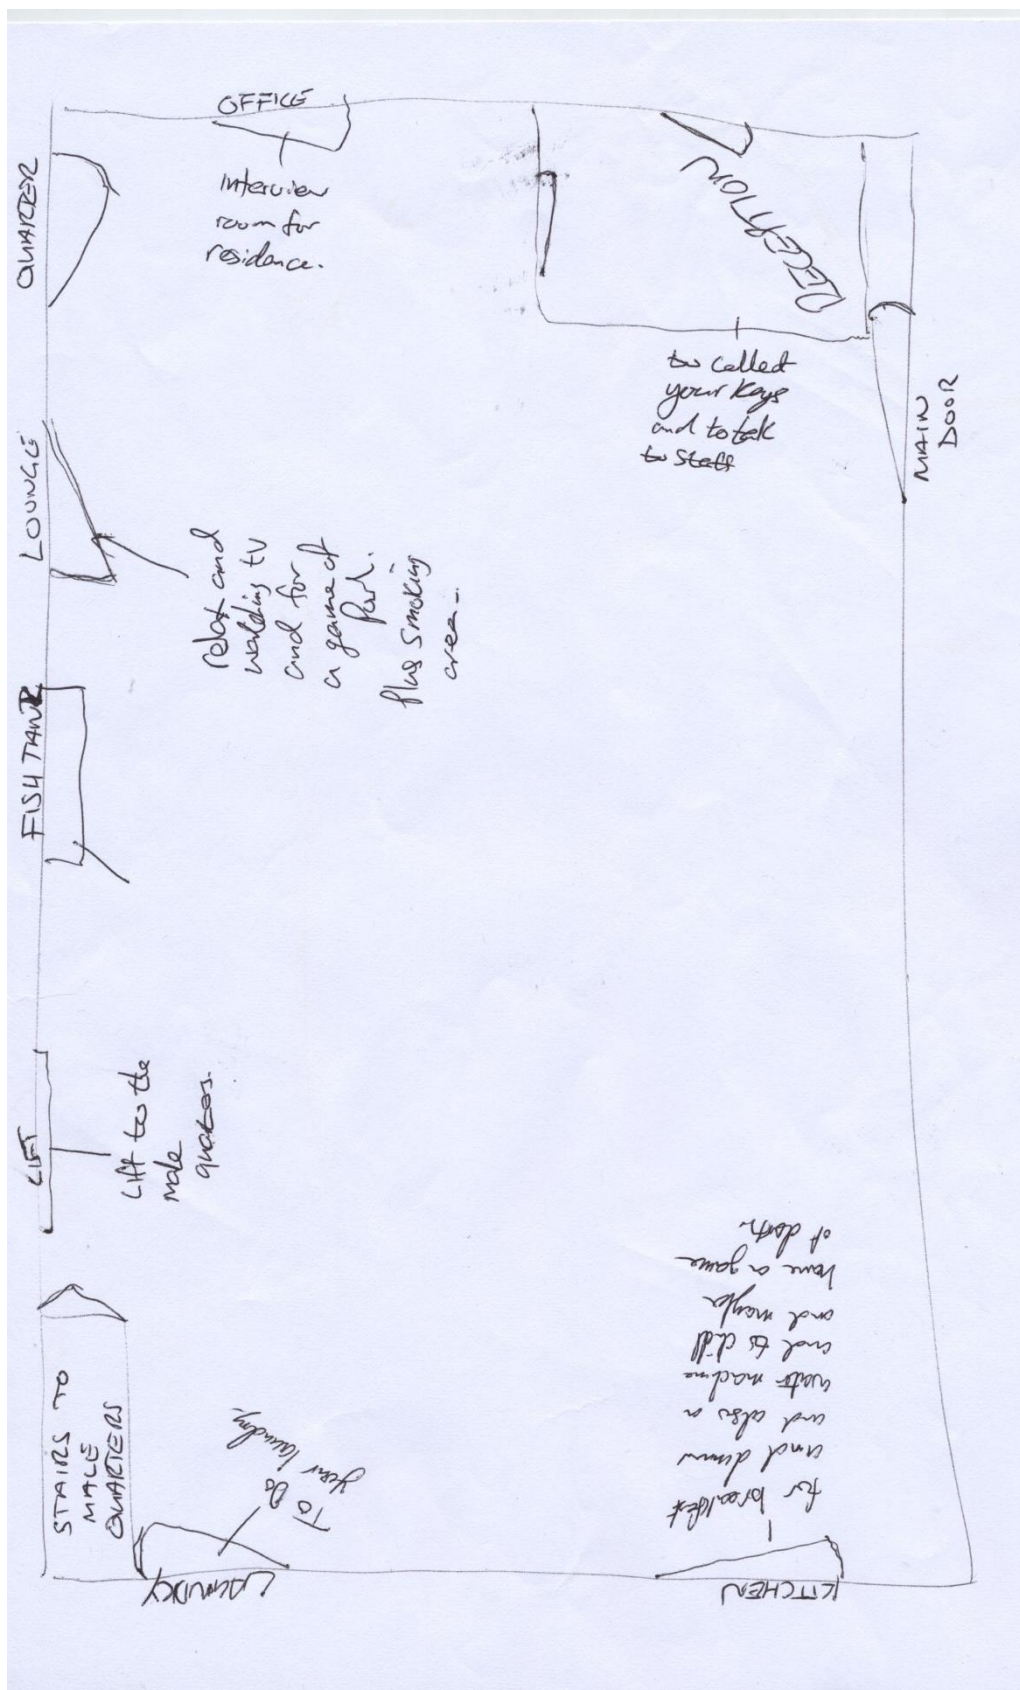 OFFICE
Interview
room for
residance.
QUARTER
RECEPTION
to called
your keys
and to talk
to staff
MAIN
DOOR
LOUNGE
relax and
watching tv
and for
a game of
Plus smoking
area.
FISH TANK
LIFT
Lift to the
male
STAIRS TO
MALE
QUARTERS
LAUNDRY
To Do
your laundry.
KITCHEN
for breakfast
and dinner
and also a
water machine
and to chill
and maybe
have a game
of darts.